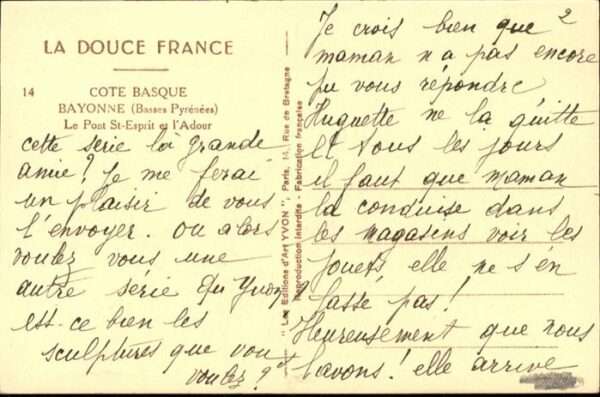 LA DOUCE FRANCE
14 COTE BASQUE
BAYONNE (Basses Pyrénées)
Le Pont St-Esprit et l'Adour
cette série la grande
amie? Je me ferai
un plaisir de vous
l'envoyer. Ou alors
voulez vous une
autre série du Yvon
est-ce bien les
sculptures que vous
voulez?
"Les Editions d'Art YVON", Paris, 15, Rue de Bretagne
Reproduction Interdite - Fabrication française
2
Je crois bien que
maman n'a pas encore
pu vous répondre
Huguette ne la quitte
et tous les jours
il faut que maman
la conduise dans
les magasins voir les
jouets elle ne s'en
lasse pas!
Heureusement que nous
l'avons! elle arrive